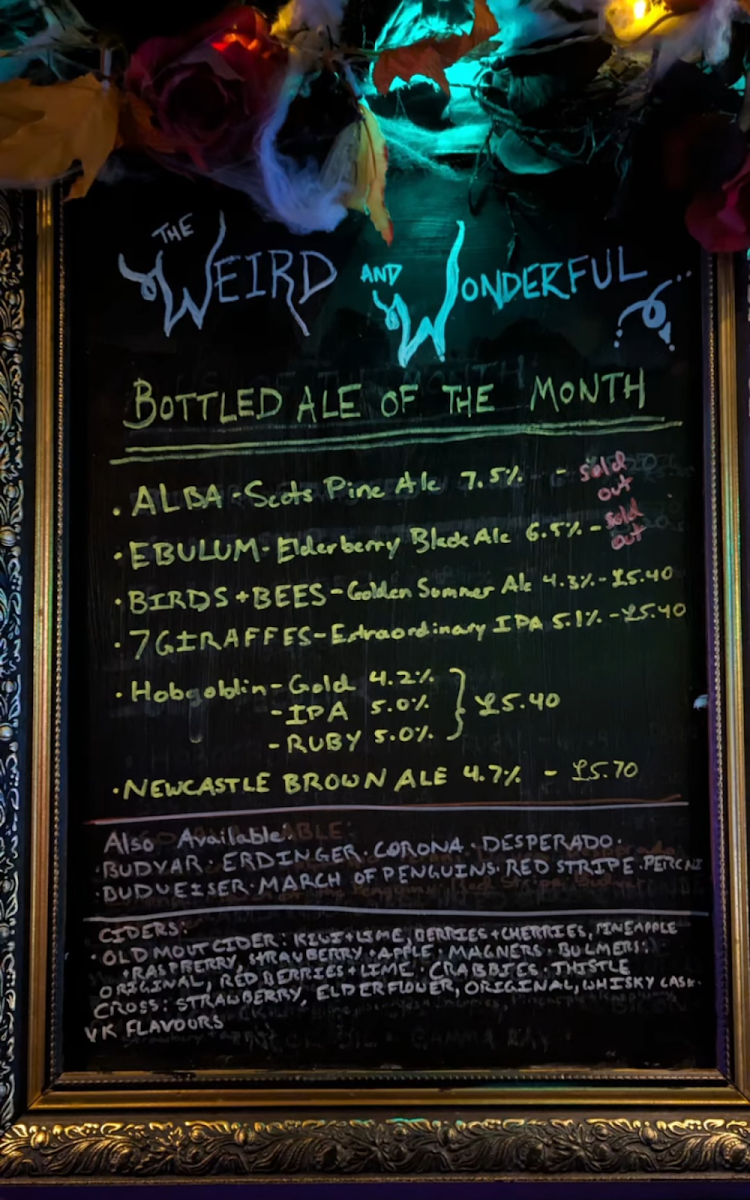 THE
WEIRD AND WONDERFUL
BOTTLED ALE OF THE MONTH
• ALBA - Scots Pine Ale 7.5% - sold out
• EBULUM - Elderberry Black Ale 6.5% - sold out
• BIRDS + BEES - Golden Summer Ale 4.3% - £5.40
• 7 GIRAFFES - Extraordinary IPA 5.1% - £5.40
• Hobgoblin - Gold 4.2%
- IPA 5.0% } £5.40
- RUBY 5.0%
• NEWCASTLE BROWN ALE 4.7% - £5.70
Also Available:
• BUDVAR • ERDINGER • CORONA • DESPERADO •
• BUDVEISER • MARCH OF PENGUINS • RED STRIPE •
CIDERS:
• OLD MOUT CIDER: KIWI + LIME, BERRIES + CHERRIES, PINEAPPLE
+ RASPBERRY, STRAWBERRY + APPLE • MAGNERS • BULMERS:
ORIGINAL, RED BERRIES + LIME • CRABBIES • THISTLE
CROSS: STRAWBERRY, ELDERFLOWER, ORIGINAL, WHISKY CASK •
VK FLAVOURS